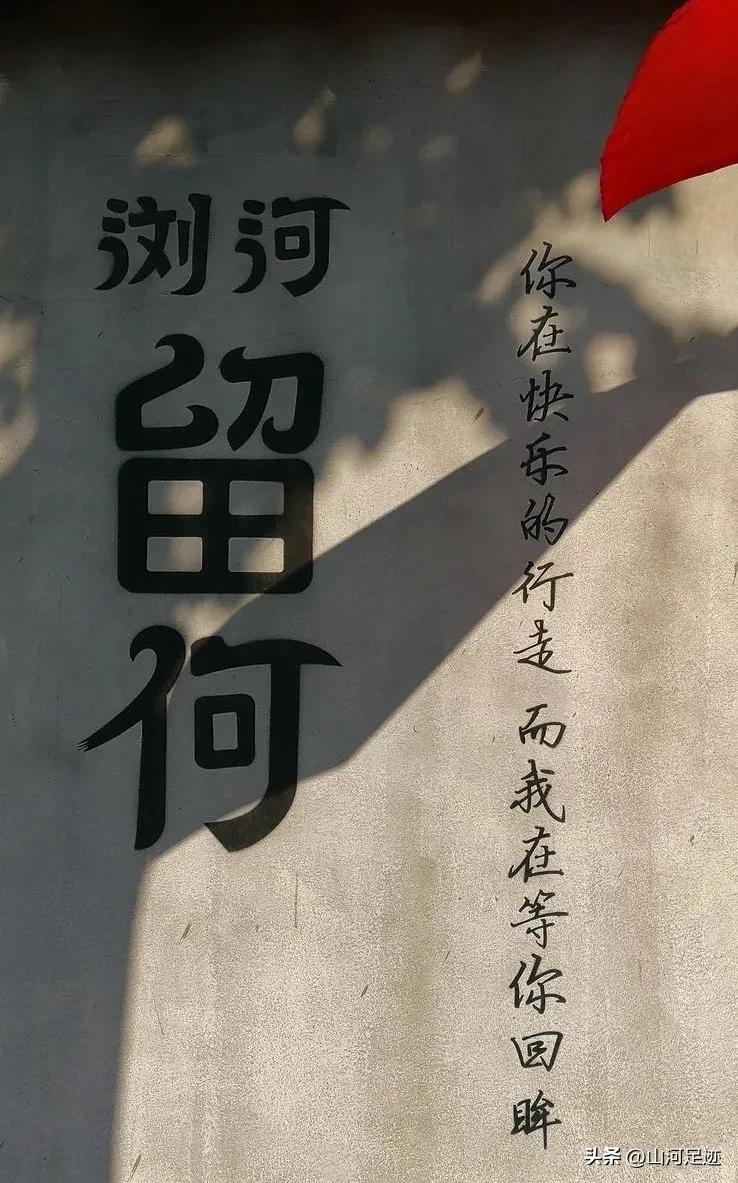 浏河
留
何
你在快乐的行走 而我在等你回眸
头条 @山河足迹